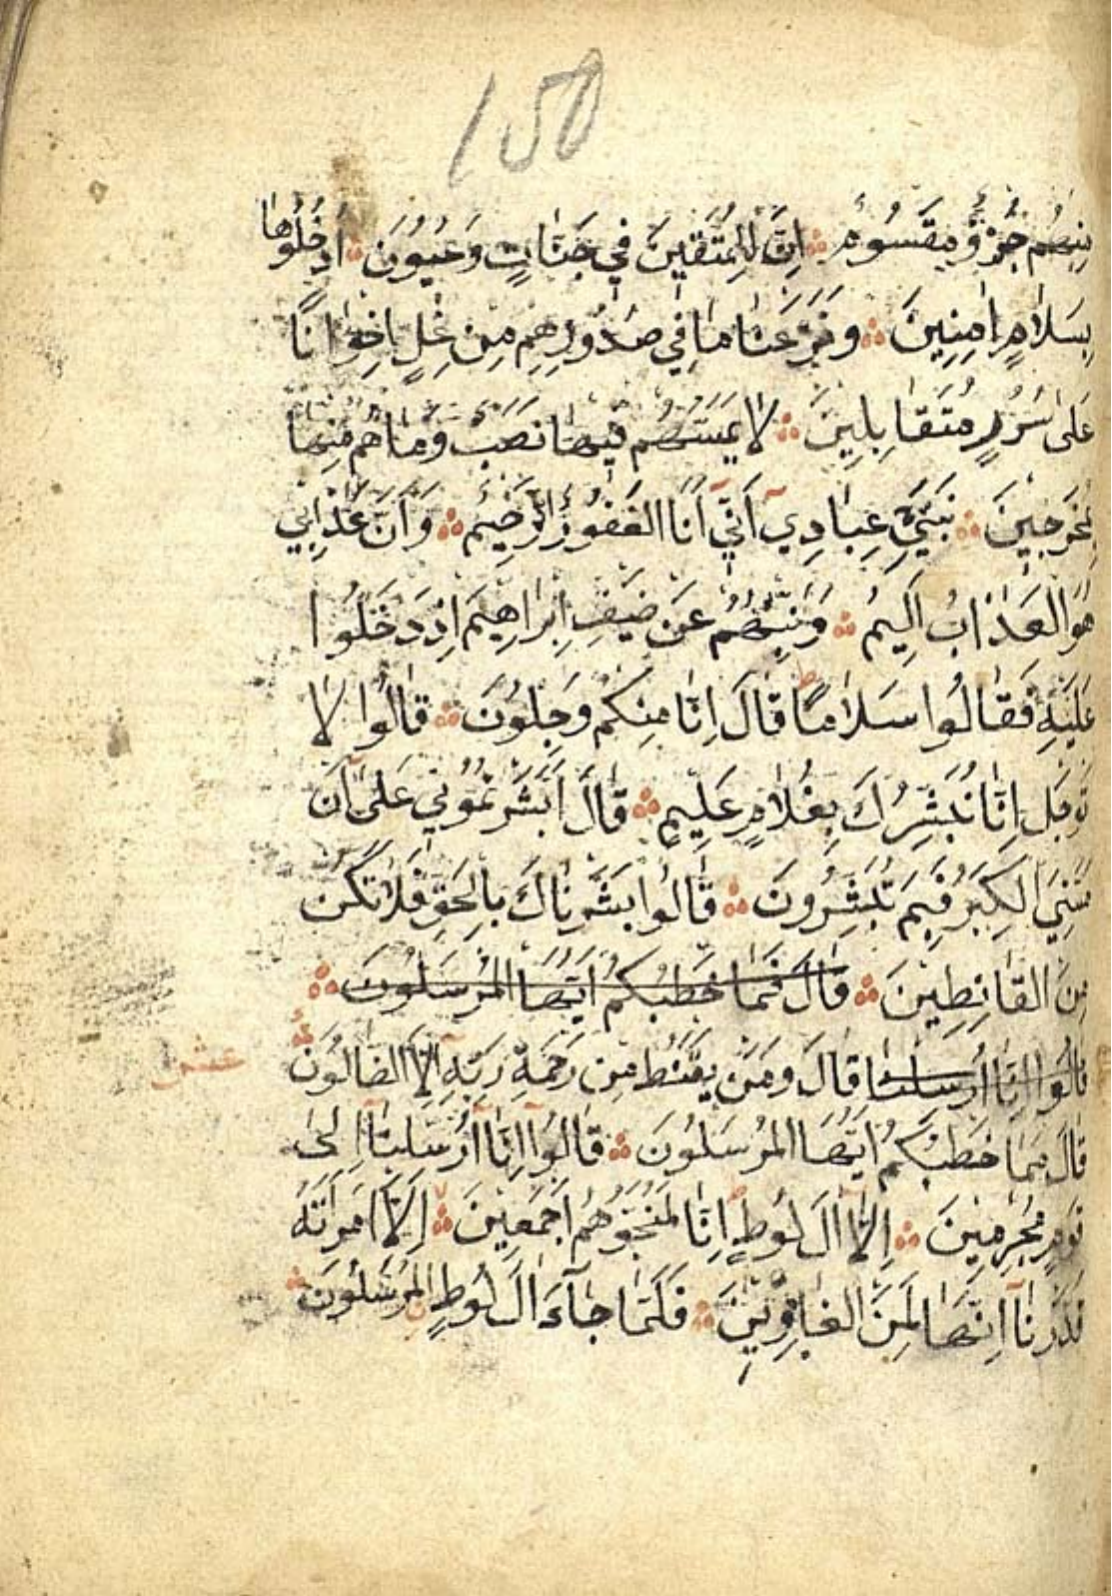 150
مِنْهُمْ جُزْؤٌ مَقْسُومٌ ۞ اِنَّ الْمُتَّقِينَ فِي جَنَّاتٍ وَعُيُونٍ ۞ اُدْخُلُوهَا
بِسَلَامٍ اٰمِنِينَ ۞ وَنَزَعْنَا مَا فِي صُدُورِهِمْ مِنْ غِلٍّ اِخْوَانًا
عَلٰى سُرُرٍ مُتَقَابِلِينَ ۞ لَا يَمَسُّهُمْ فِيهَا نَصَبٌ وَمَا هُمْ مِنْهَا
بِمُخْرَجِينَ ۞ نَبِّئْ عِبَادِي اَنِّي اَنَا الْغَفُورُ الرَّحِيمُ ۞ وَاَنَّ عَذَابِي
هُوَ الْعَذَابُ الْاَلِيمُ ۞ وَنَبِّئْهُمْ عَنْ ضَيْفِ اِبْرَاهِيمَ اِذْ دَخَلُوا
عَلَيْهِ فَقَالُوا سَلَامًا قَالَ اِنَّا مِنْكُمْ وَجِلُونَ ۞ قَالُوا لَا
تَوْجَلْ اِنَّا نُبَشِّرُكَ بِغُلَامٍ عَلِيمٍ ۞ قَالَ اَبَشَّرْتُمُونِي عَلٰى اَنْ
مَسَّنِيَ الْكِبَرُ فَبِمَ تُبَشِّرُونَ ۞ قَالُوا بَشَّرْنَاكَ بِالْحَقِّ فَلَا تَكُنْ
مِنَ الْقَانِطِينَ ۞ قَالَ فَمَا خَطْبُكُمْ اَيُّهَا الْمُرْسَلُونَ ۞
قَالُوا اِنَّا اُرْسِلْنَا قَالَ وَمَنْ يَقْنَطُ مِنْ رَحْمَةِ رَبِّهِ اِلَّا الضَّالُّونَ ۞ عشر
قَالَ فَمَا خَطْبُكُمْ اَيُّهَا الْمُرْسَلُونَ ۞ قَالُوا اِنَّا اُرْسِلْنَا اِلٰى
قَوْمٍ مُجْرِمِينَ ۞ اِلَّا اٰلَ لُوطٍ اِنَّا لَمُنَجُّوهُمْ اَجْمَعِينَ ۞ اِلَّا امْرَاَتَهُ
قَدَّرْنَا اِنَّهَا لَمِنَ الْغَابِرِينَ ۞ فَلَمَّا جَاءَ اٰلَ لُوطٍ الْمُرْسَلُونَ ۞